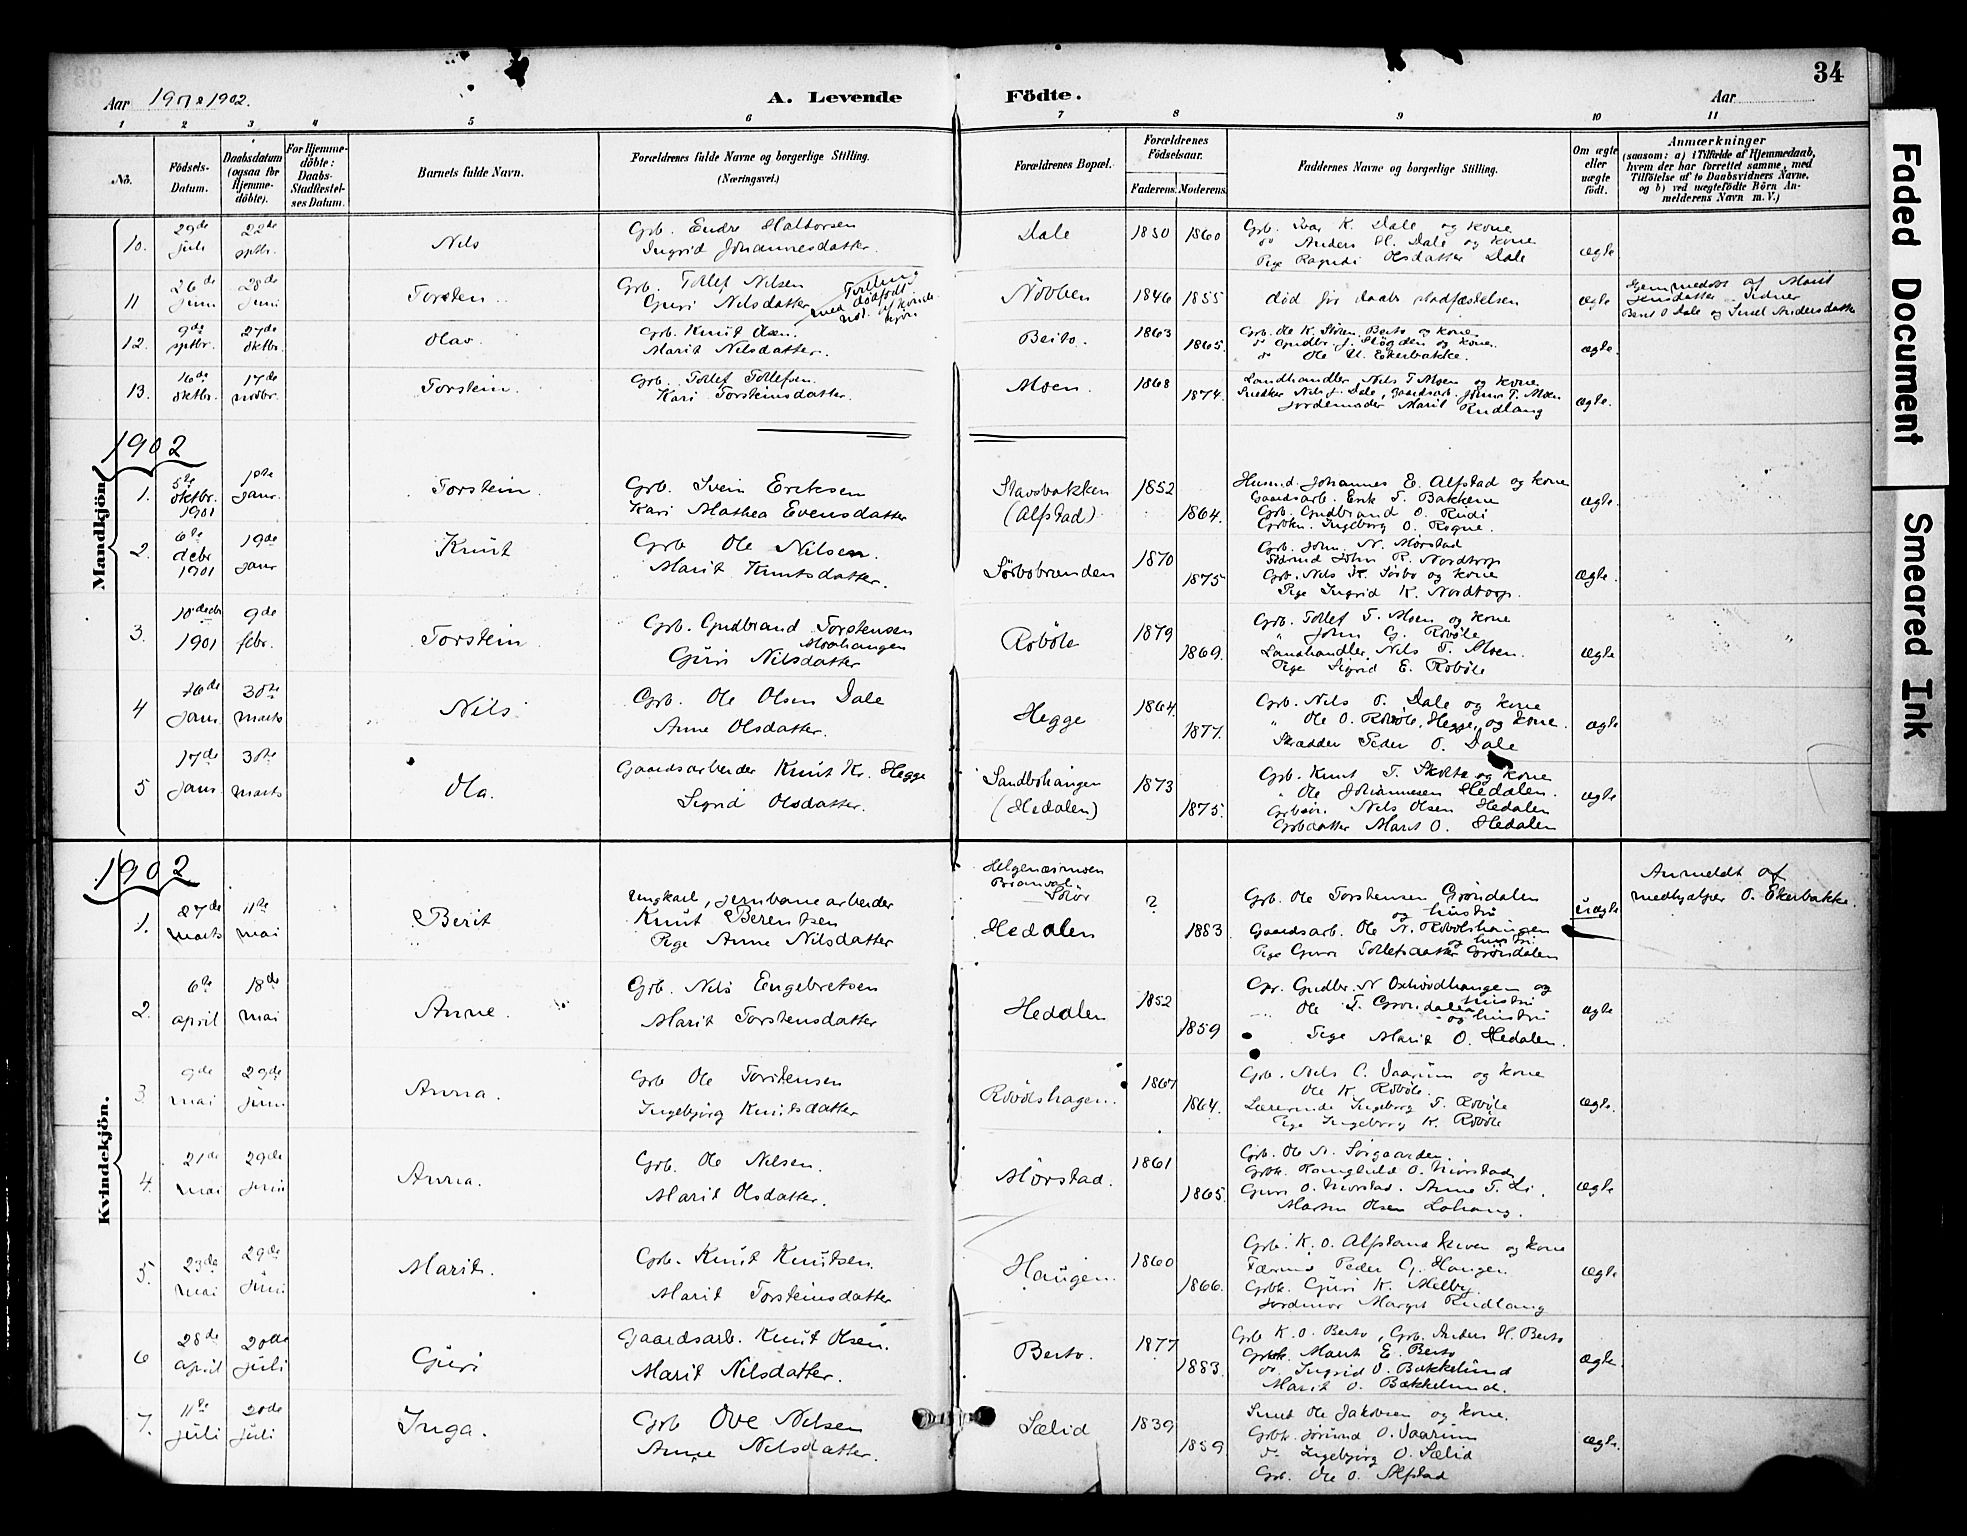 34
Aar 1901 & 1902.
A. Levende Födte.
Aar
1 2 3 4 5 6 7 8 9 10 11
No.
Födsels-Datum.
Daabsdatum (ogsaa før Hjemme-döbte).
For Hjemme-döbte: Daabs-Stadfæstel-ses Datum.
Barnets fulde Navn.
Forældrenes fulde Navne og borgerlige Stilling.
(Næringsvei.)
Forældrenes Bopæl.
Forældrenes Födselsaar.
Faderens. Moderens.
Faddernes Navne og borgerlige Stilling.
Om ægte eller uægte födt.
Anmærkninger
(saasom: a) i Tilfælde af Hjemmedaab, hvem der har forrettet samme, med Tilföielse af to Daabsvidners Navne, og b) ved uægtefödte Börn Anmelderens Navn m. V.)
10. 29de juli 22de sptbr. Nils
Grb. Endre Halvorsen
Ingrid Johannesdatter
Dale 1850 1860
Grb. Ivar K. Dale og kone
do Anders H. Dale og kone
Pige Ragndi Olsdatter Dale
ægte
11 26de juni 28de juni Torsten
Grb. Tollef Nilsen
Guri Nilsdatter
Tvilling med dødfødt
af kvindekjøn
1846 1855
død før daabs stadfæstelsen
ægte
Hjemmedøbt af Marit
12. 9de sptbr. 27de oktbr. Olav
Grb. Knut Olsen.
Marit Nilsdatter.
Beito. 1863 1865.
do Ole U. Ekerbakke.
ægte
13. 16de oktbr. 17de novbr. Torstein.
Grb. Tollef Tollefsen
Kari Torsteinsdatter.
Moen. 1868 1874.
Landhandler Nils T. Moen og kone
Snedker Nils J. Dale, Gaardsarb. John T. Moen
Jordemoder Marit Rudlang
ægte.
1902
Mandkjön
1. 5te oktbr. 1901 1ste janr. Torstein.
Grb. Svein Eriksen
Kari Mathea Evensdatter
Stavsbakken
(Alfstad)
1852 1864.
Husmd Johannes E. Alfstad og kone
Gaardsarb. Erik T. Bakkene
Grb. Gudbrand O. Rudi
Grbkn. Ingeborg O. Rogne.
ægte
2. 6te debr 1901 19de janr Knut
Grb Ole Nilsen.
Marit Knutsdatter.
Sørbobraaden 1870 1875.
Grb. John N. Mørstad
John R. Nordtorp
Grb. Nils K. Sørbo og kone
Pige Ingrid K. Nordtorp.
ægte.
3. 1901 9de febr. Torstein
Grb. Gudbrand Torstensen
Moahaugen
Guri Nilsdatter
Robøle 1879 1869.
Grb. Tollef T. Moen og kone
" John G. Robøle
Landhandler Nils T. Moen.
Pige Sigrid E. Robøle
ægte
4 16de janr 30te marts Nils
Grb. Ole Olsen Dale
Anne Olsdatter.
Hegge 1864. 1877.
Grb. Nils O. Dale og kone
" Ole O. Robøle, Hegge og kone.
Skrædder Peder O. Dale
ægte
5 17de janr 30te marts Ola.
Gaardsarbeider Knut Kr. Hegge
Sigrid Olsdatter.
Sandbohaugen
(Hedalen)
1873 1875.
Grb. Knut T. Skolte og kone
" Ole Johannesen Hedalen.
Grbsøn. Nils Olsen Hedalen
Grbdatter Marit O. Hedalen
ægte
1902
Kvindekjön.
1. 27de marts 11te mai Berit
Ungkarl, jernbanearbeider
Knut Berentsen
Pige Anne Nilsdatter
Hedalen
? 1883
Grb. Ole Torstensen Grøndalen
og hustri
Gaardsarb. Ole N. Robølshaugen
og hustri
Pige Guri Tollefsdatter Grøndalen
uægte
Anmeldt af
medhjælper O. Ekerbakke.
2. 6te april 18de mai Anne.
Grb. Nils Engebretsen
Marit Torstensdatter
Hedalen 1852 1859
Ole T. Grøndalen
og hustri
Pige Marit O. Hedalen.
ægte
3. 9de mai 29de juni Anna.
Grb Ole Torstensen
Ingebjørg Knutsdatter
Robølshagen. 1867 1864.
Grb. Nils C. Vaarum og kone
Ole K. Robøle.
Lærerinde Ingeborg T. Robøle
Pige Ingeborg K. Robøle
ægte.
4. 21de mai 29de juni Anna.
Grb. Ole Nilsen.
Marit Olsdatter.
Mørstad. 1861 1865.
Grb. Ole N. Sørgaarden.
Grbk. Ragnhild O. Mørstad,
Guri O. Mørstad. Anne T. Li.
ægte
5. 23de mai 29de juni Marit.
Grb. Knut Knutsen.
Marit Torsteinsdatter
Haugen. 1860 1866.
Peder G. Haugen
Grbk. Guri K. Melby.
Jordmor Margit Rudlang
ægte
6 28de april 20de juli Guri
Gaardsarb. Knut Olsen.
Marit Nilsdatter.
Beito. 1877 1883.
Grb K. O. Beito, Grb. Anders H. Beito
Grbk. Marit E. Beito
do. Ingrid O. Bakkelund
Marit O. Bakkelund.
ægte
7. 11te juli 20de juli Inga.
Grb Ove Nilsen
Anne Nilsdatter.
Sælid 1839 1859.
Smed Ole Jakobsen og kone.
Grbk. Jørund O. Vaarum
do. Ingebjørg O. Sælid
Grb. Ole O. Alfstad
ægte.
Faded Document
Smeared Ink